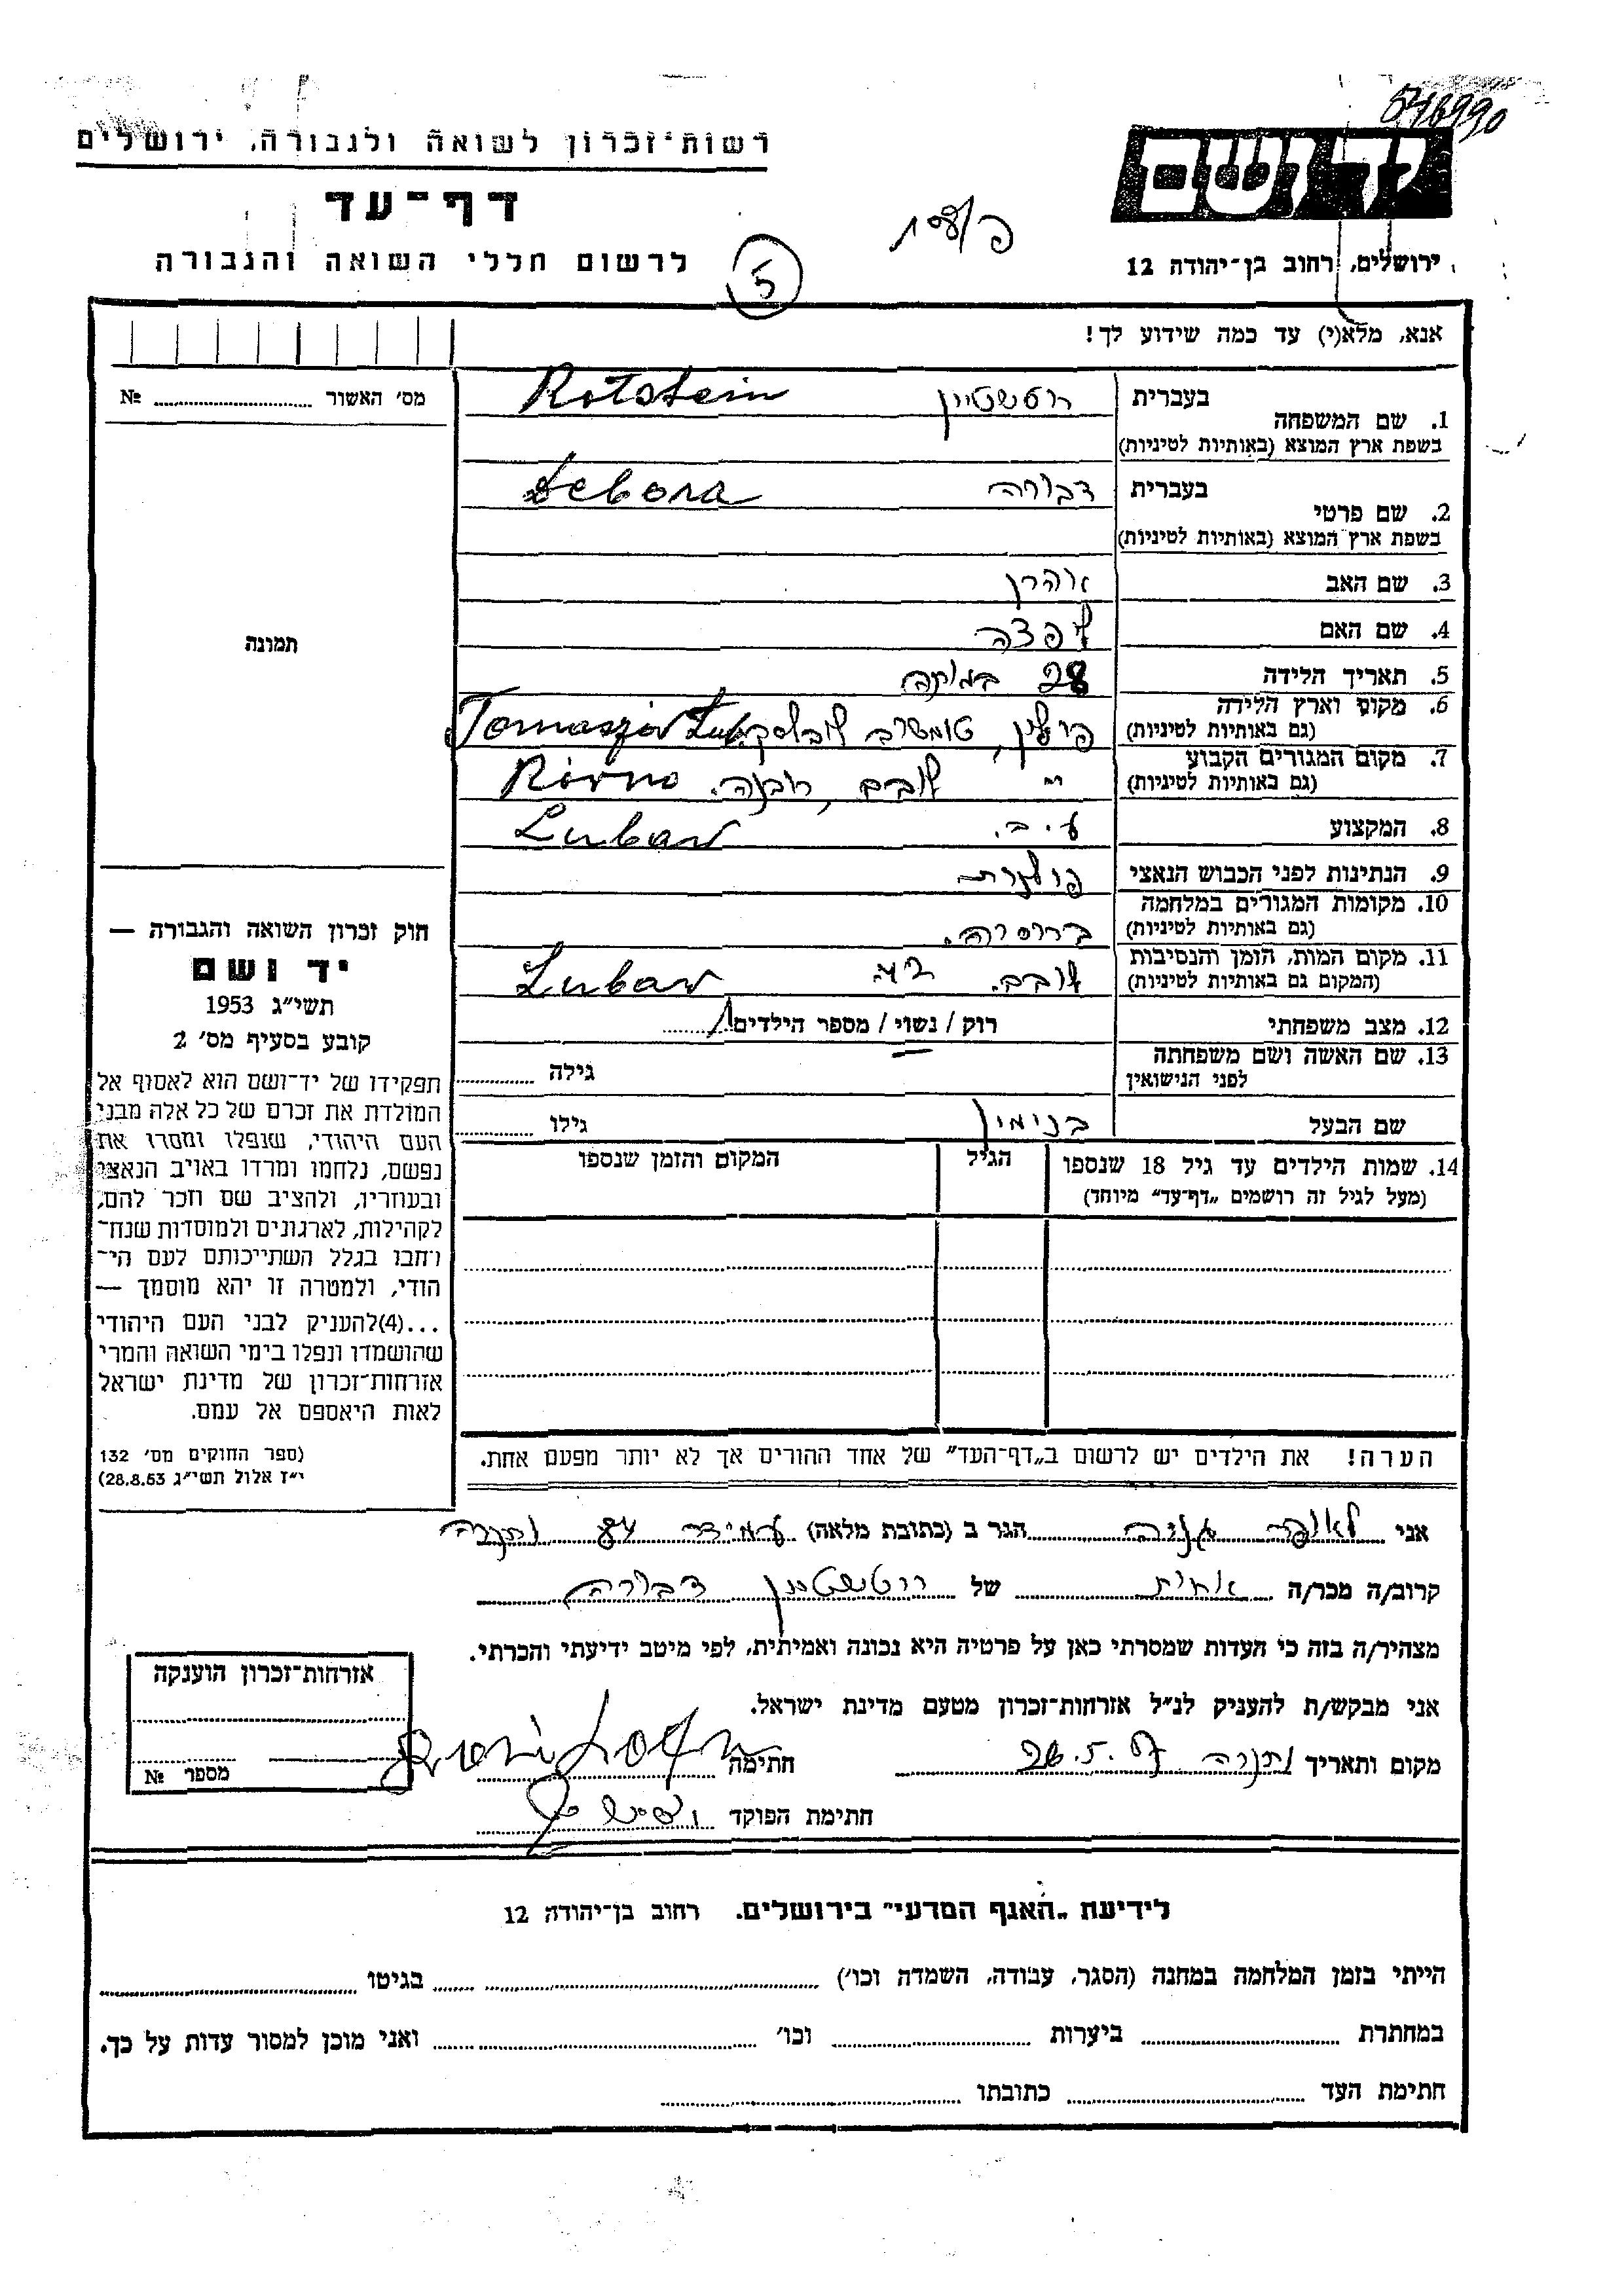 546990
רשות־זכרון לשואה ולגבורה, ירושלים
יד ושם
דף־עד
לרשום חללי השואה והגבורה
5
ירושלים, רחוב בן־יהודה 12
אנא, מלא(י) עד כמה שידוע לך!
מס׳ האשור № 
1. שם המשפחה בעברית רוטשטיין Rotstein
בשפת ארץ המוצא (באותיות לטיניות)
2. שם פרטי בעברית דבורה Debora
בשפת ארץ המוצא (באותיות לטיניות)
3. שם האב אהרן
4. שם האם
5. תאריך הלידה 28
6. מקום וארץ הלידה פולין, טומשוב לובלסקי Tomaszów Lub.
(גם באותיות לטיניות)
7. מקום המגורים הקבוע
(גם באותיות לטיניות)
8. המקצוע ע.ב. Lubar
9. הנתינות לפני הכבוש הנאצי פולנית
10. מקומות המגורים במלחמה ברוסיה.
(גם באותיות לטיניות)
11. מקום המות, הזמן והנסיבות Lubar
(המקום גם באותיות לטיניות)
12. מצב משפחתי רוק / נשוי / מספר הילדים 1
13. שם האשה ושם משפחתה גילה
לפני הנישואין
שם הבעל בנימין גילו
14. שמות הילדים עד גיל 18 שנספו הגיל המקום והזמן שנספו
(מעל לגיל זה רושמים „דף־עד״ מיוחד)
הערה! את הילדים יש לרשום ב„דף־העד״ של אחד ההורים אך לא יותר מפעם אחת.
תמונה
חוק זכרון השואה והגבורה —
יד ושם
תשי״ג 1953
קובע בסעיף מס׳ 2
תפקידו של יד־ושם הוא לאסוף אל
המולדת את זכרם של כל אלה מבני
העם היהודי, שנפלו ומסרו את
נפשם, נלחמו ומרדו באויב הנאצי
ובעוזריו, ולהציב שם וזכר להם,
לקהילות, לארגונים ולמוסדות שנח־
רבו בגלל השתייכותם לעם הי־
הודי, ולמטרה זו יהא מוסמך —
...(4)להעניק לבני העם היהודי
שהושמדו ונפלו בימי השואה והמרי
אזרחות־זכרון של מדינת ישראל
לאות היאספם אל עמם.
(ספר החוקים מס׳ 132
י״ז אלול תשי״ג 28.8.53)
אני הגר ב (כתובת מלאה)
קרוב/ה מכר/ה אחות של רוטשטיין דבורה
מצהיר/ה בזה כי העדות שמסרתי כאן על פרטיה היא נכונה ואמיתית, לפי מיטב ידיעתי והכרתי.
אני מבקש/ת להעניק לנ״ל אזרחות־זכרון מטעם מדינת ישראל.
מקום ותאריך חתימה
חתימת הפוקד
אזרחות־זכרון הוענקה
מספר №
לידיעת „האגף המדעי״ בירושלים. רחוב בן־יהודה 12
הייתי בזמן המלחמה במחנה (הסגר, עבודה, השמדה וכו׳) בגיטו
במחתרת ביערות וכו׳ ואני מוכן למסור עדות על כך.
חתימת העד כתובתו